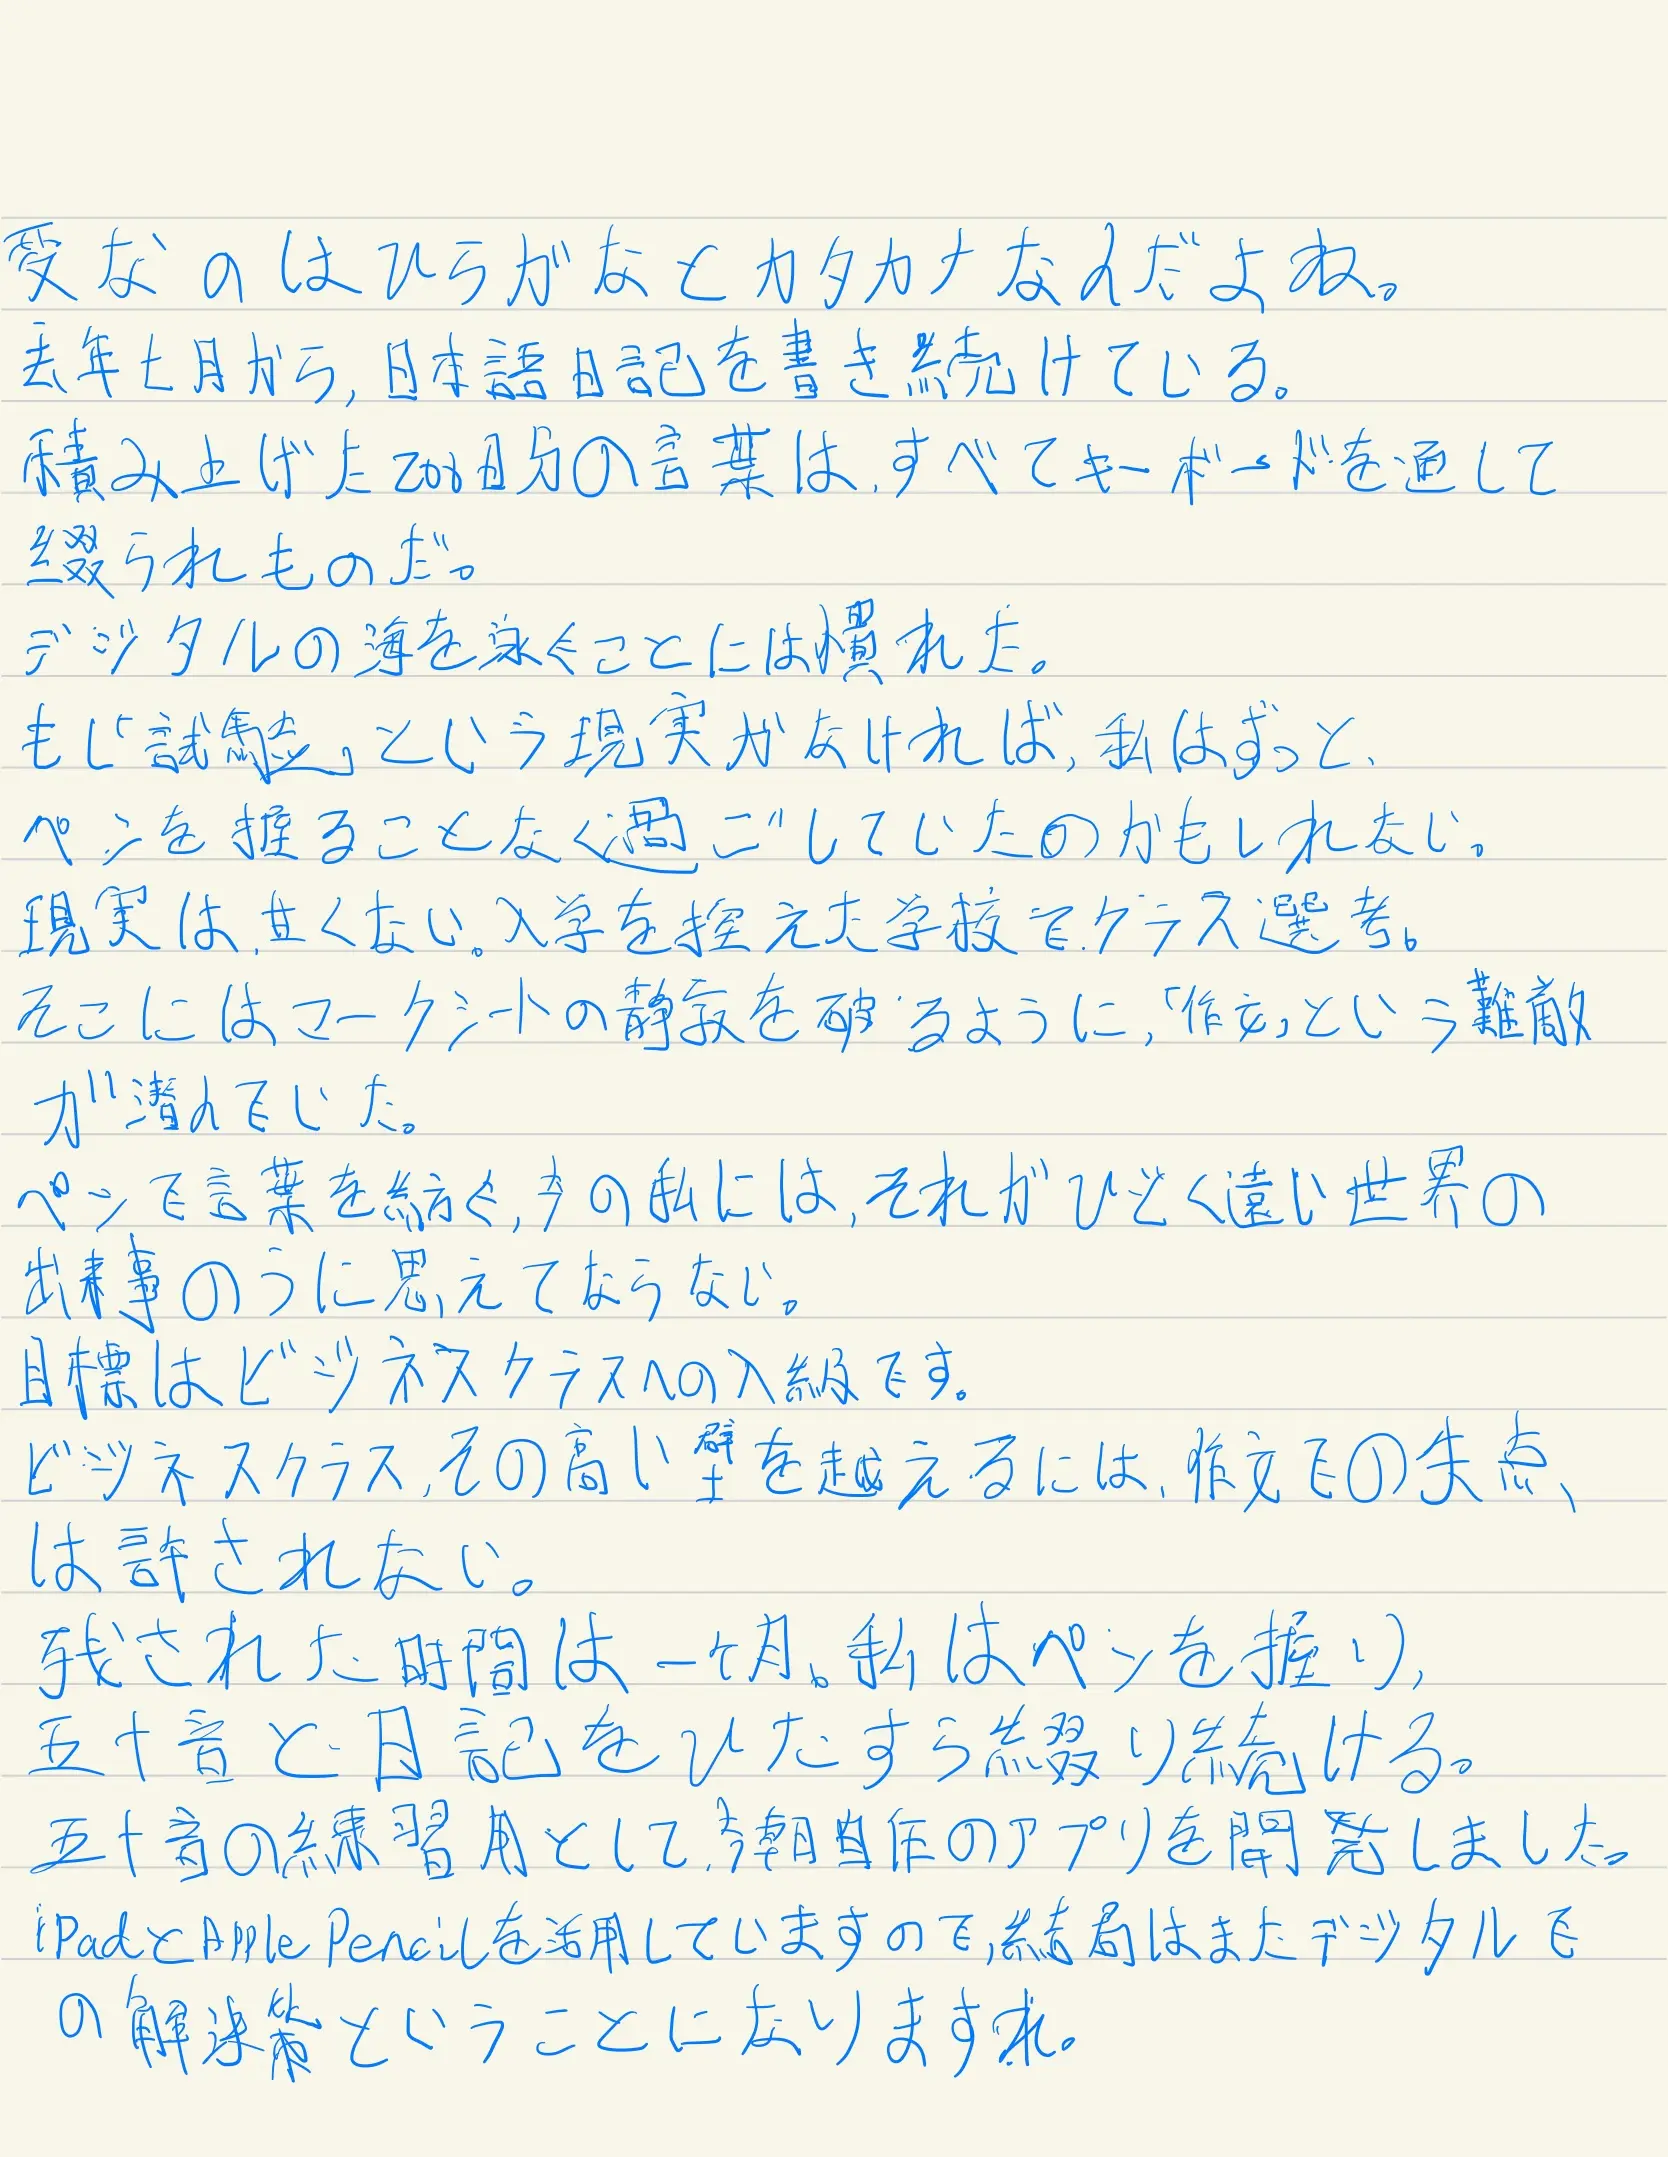 変なのはひらがなとカタカナなんだよね。
去年七月から,日本語日記を書き続けている。
積み上げた200日分の言葉は,すべてキーボードを通して
綴られものだ。
デジタルの海を泳ぐことには慣れた。
もし「試験」という現実がなければ,私はずっと、
ペンを握ることなく過ごしていたのかもしれない。
現実は,甘くない。入学を控えた学校で,クラス選考。
そこにはマークシートの静寂を破るように,「作文」という難敵
が潜んでいた。
ペンで言葉を紡ぐ,今の私には,それがひどく遠い世界の
出来事のうに思えてならない。
目標はビジネスクラスへの入級です。
ビジネスクラス,その高い壁を越えるには,作文での失点、
は許されない。
残された時間は一ヶ月。私はペンを握り,
五十音と日記をひたすら綴り続ける。
五十音の練習用として,今朝自作のアプリを開発しました。
iPadとApple Pencilを活用していますので,結局はまたデジタルで
の解決策ということになりますね。